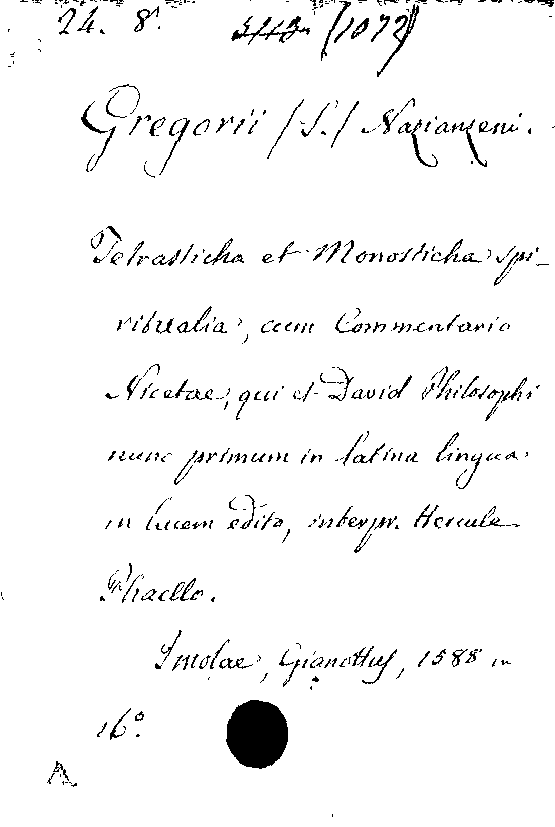 24. 8°. (1072)
Gregorii /S./ Nazianzeni.
Tetrasticha et Monosticha spi-
ritualia, cum Commentario
Nicetae, qui et David Philosophi
nunc primum in latina lingua
in lucem edito, interpr. Hercule
Phaello.
Imolae, Gianottus, 1588 in
16°.
A